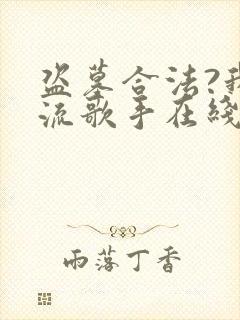 盗墓合法?我
流歌手在綫
雨落丁香